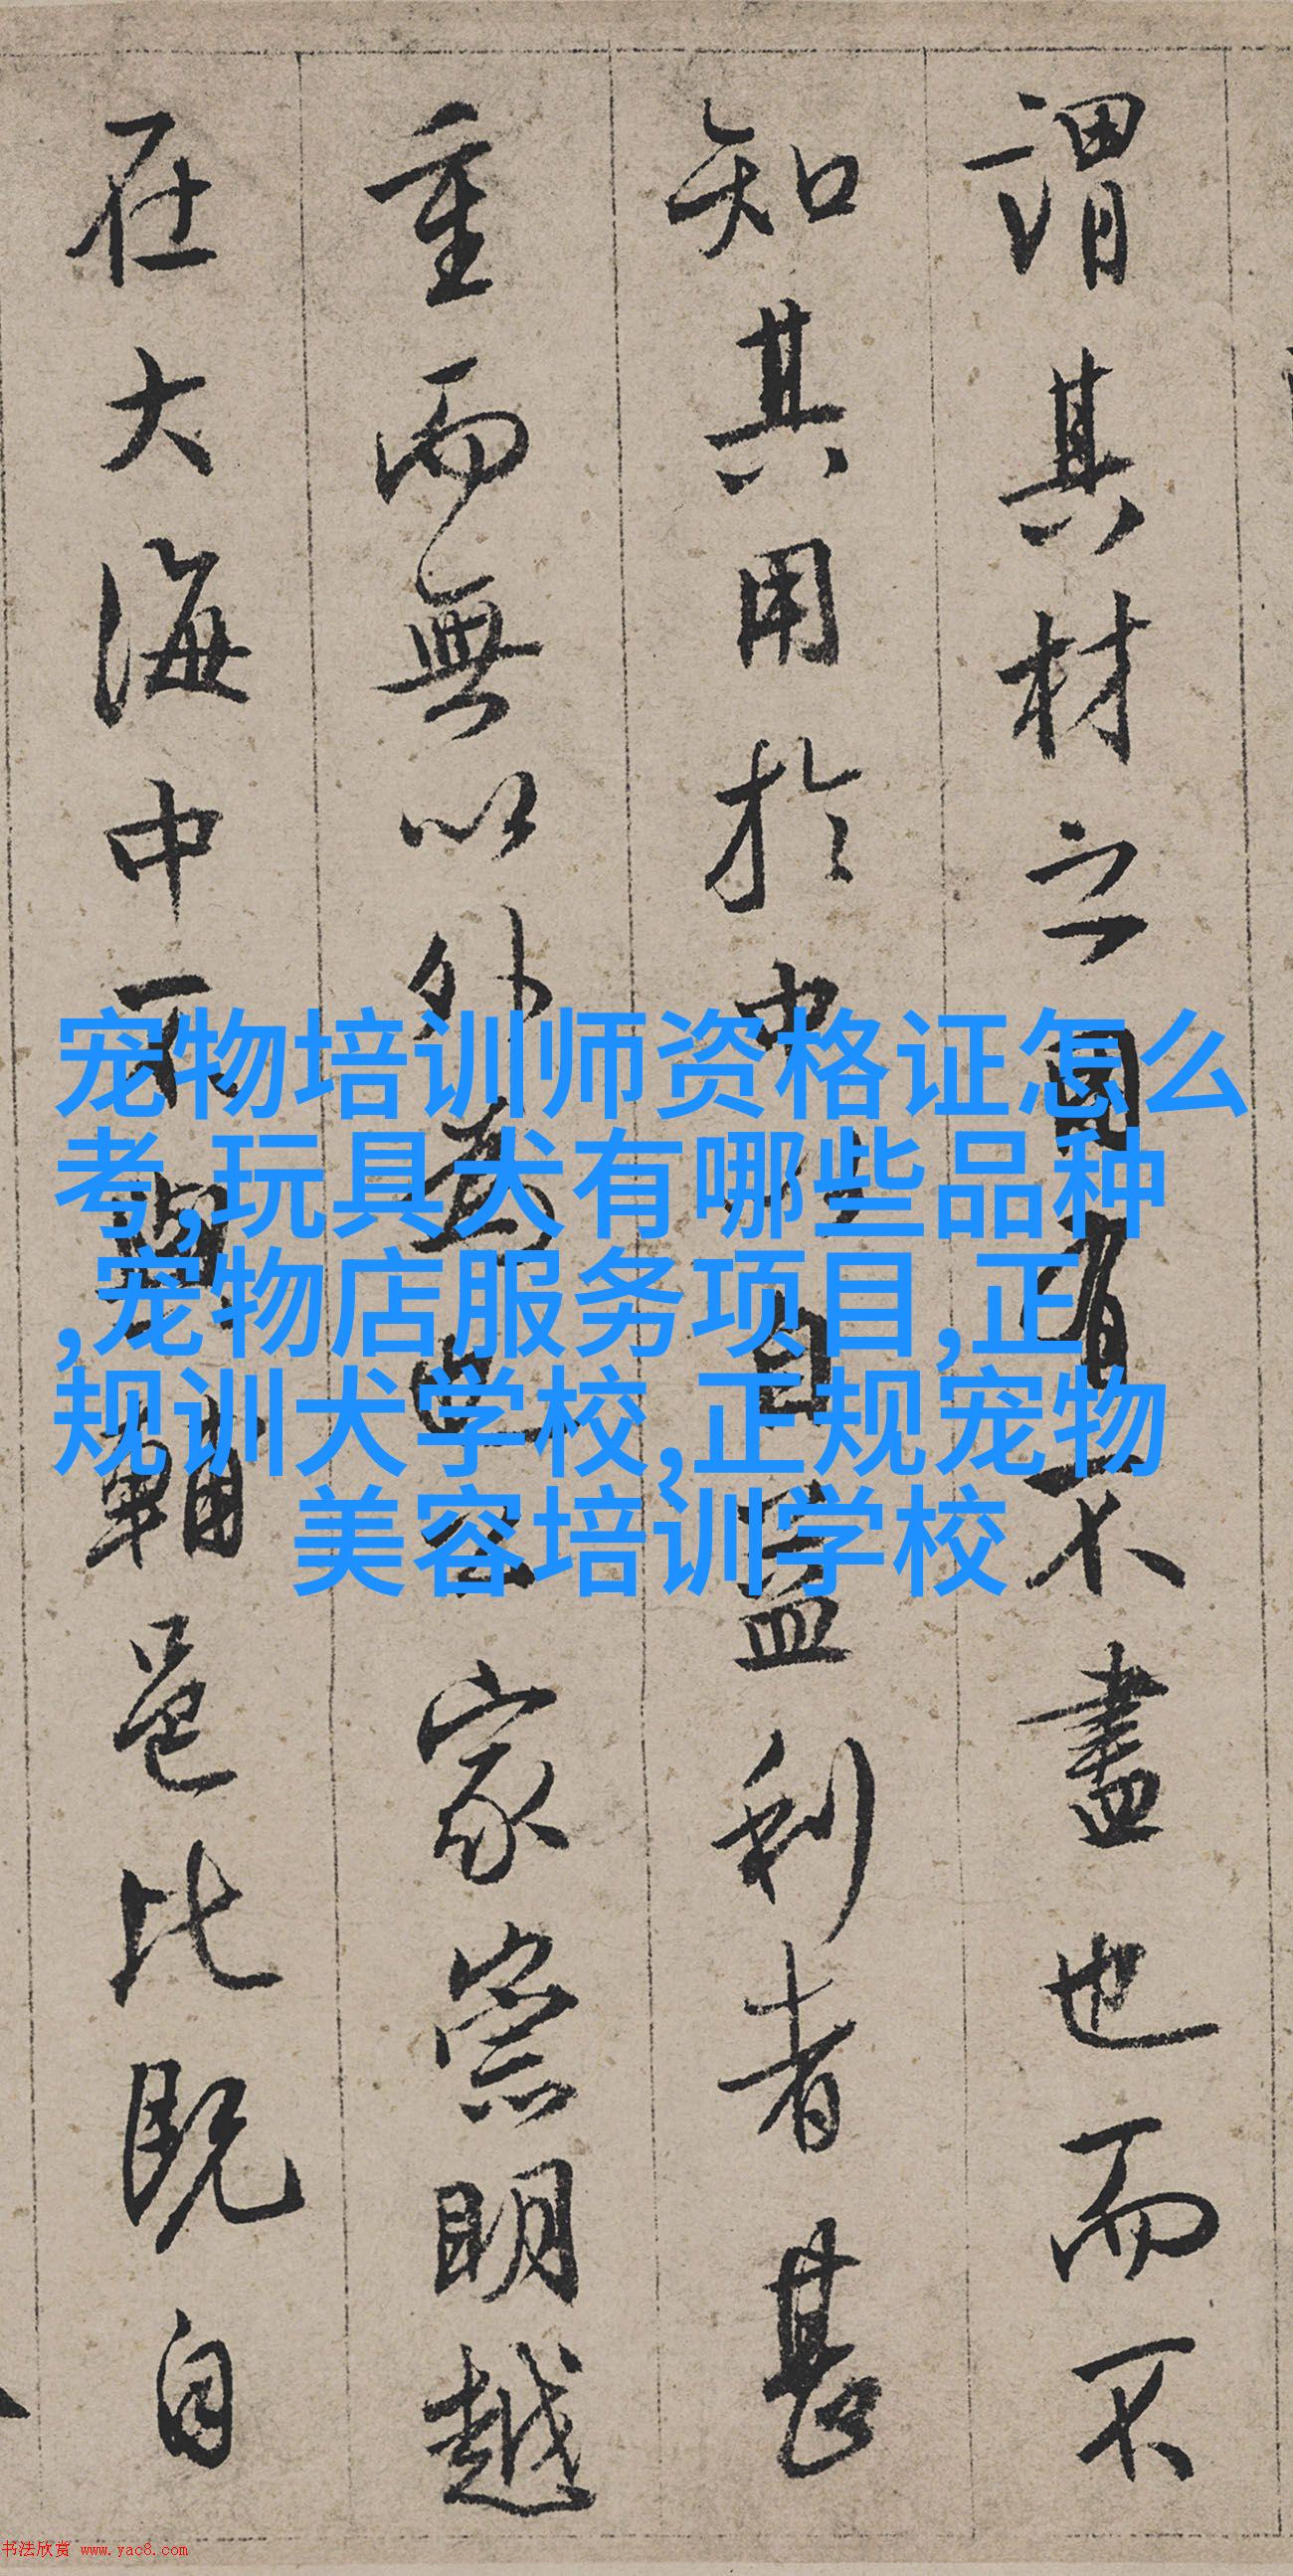 謂其材之
有不盡也而不
知其用於中
自益利者甚
重而無以外
家崇明越
在大海中
輔邑比既自
宠物培训师资格证怎么
考,玩具犬有哪些品种
,宠物店服务项目,正
规训犬学校,正规宠物
美容培训学校
书法欣赏 www.yac8.com